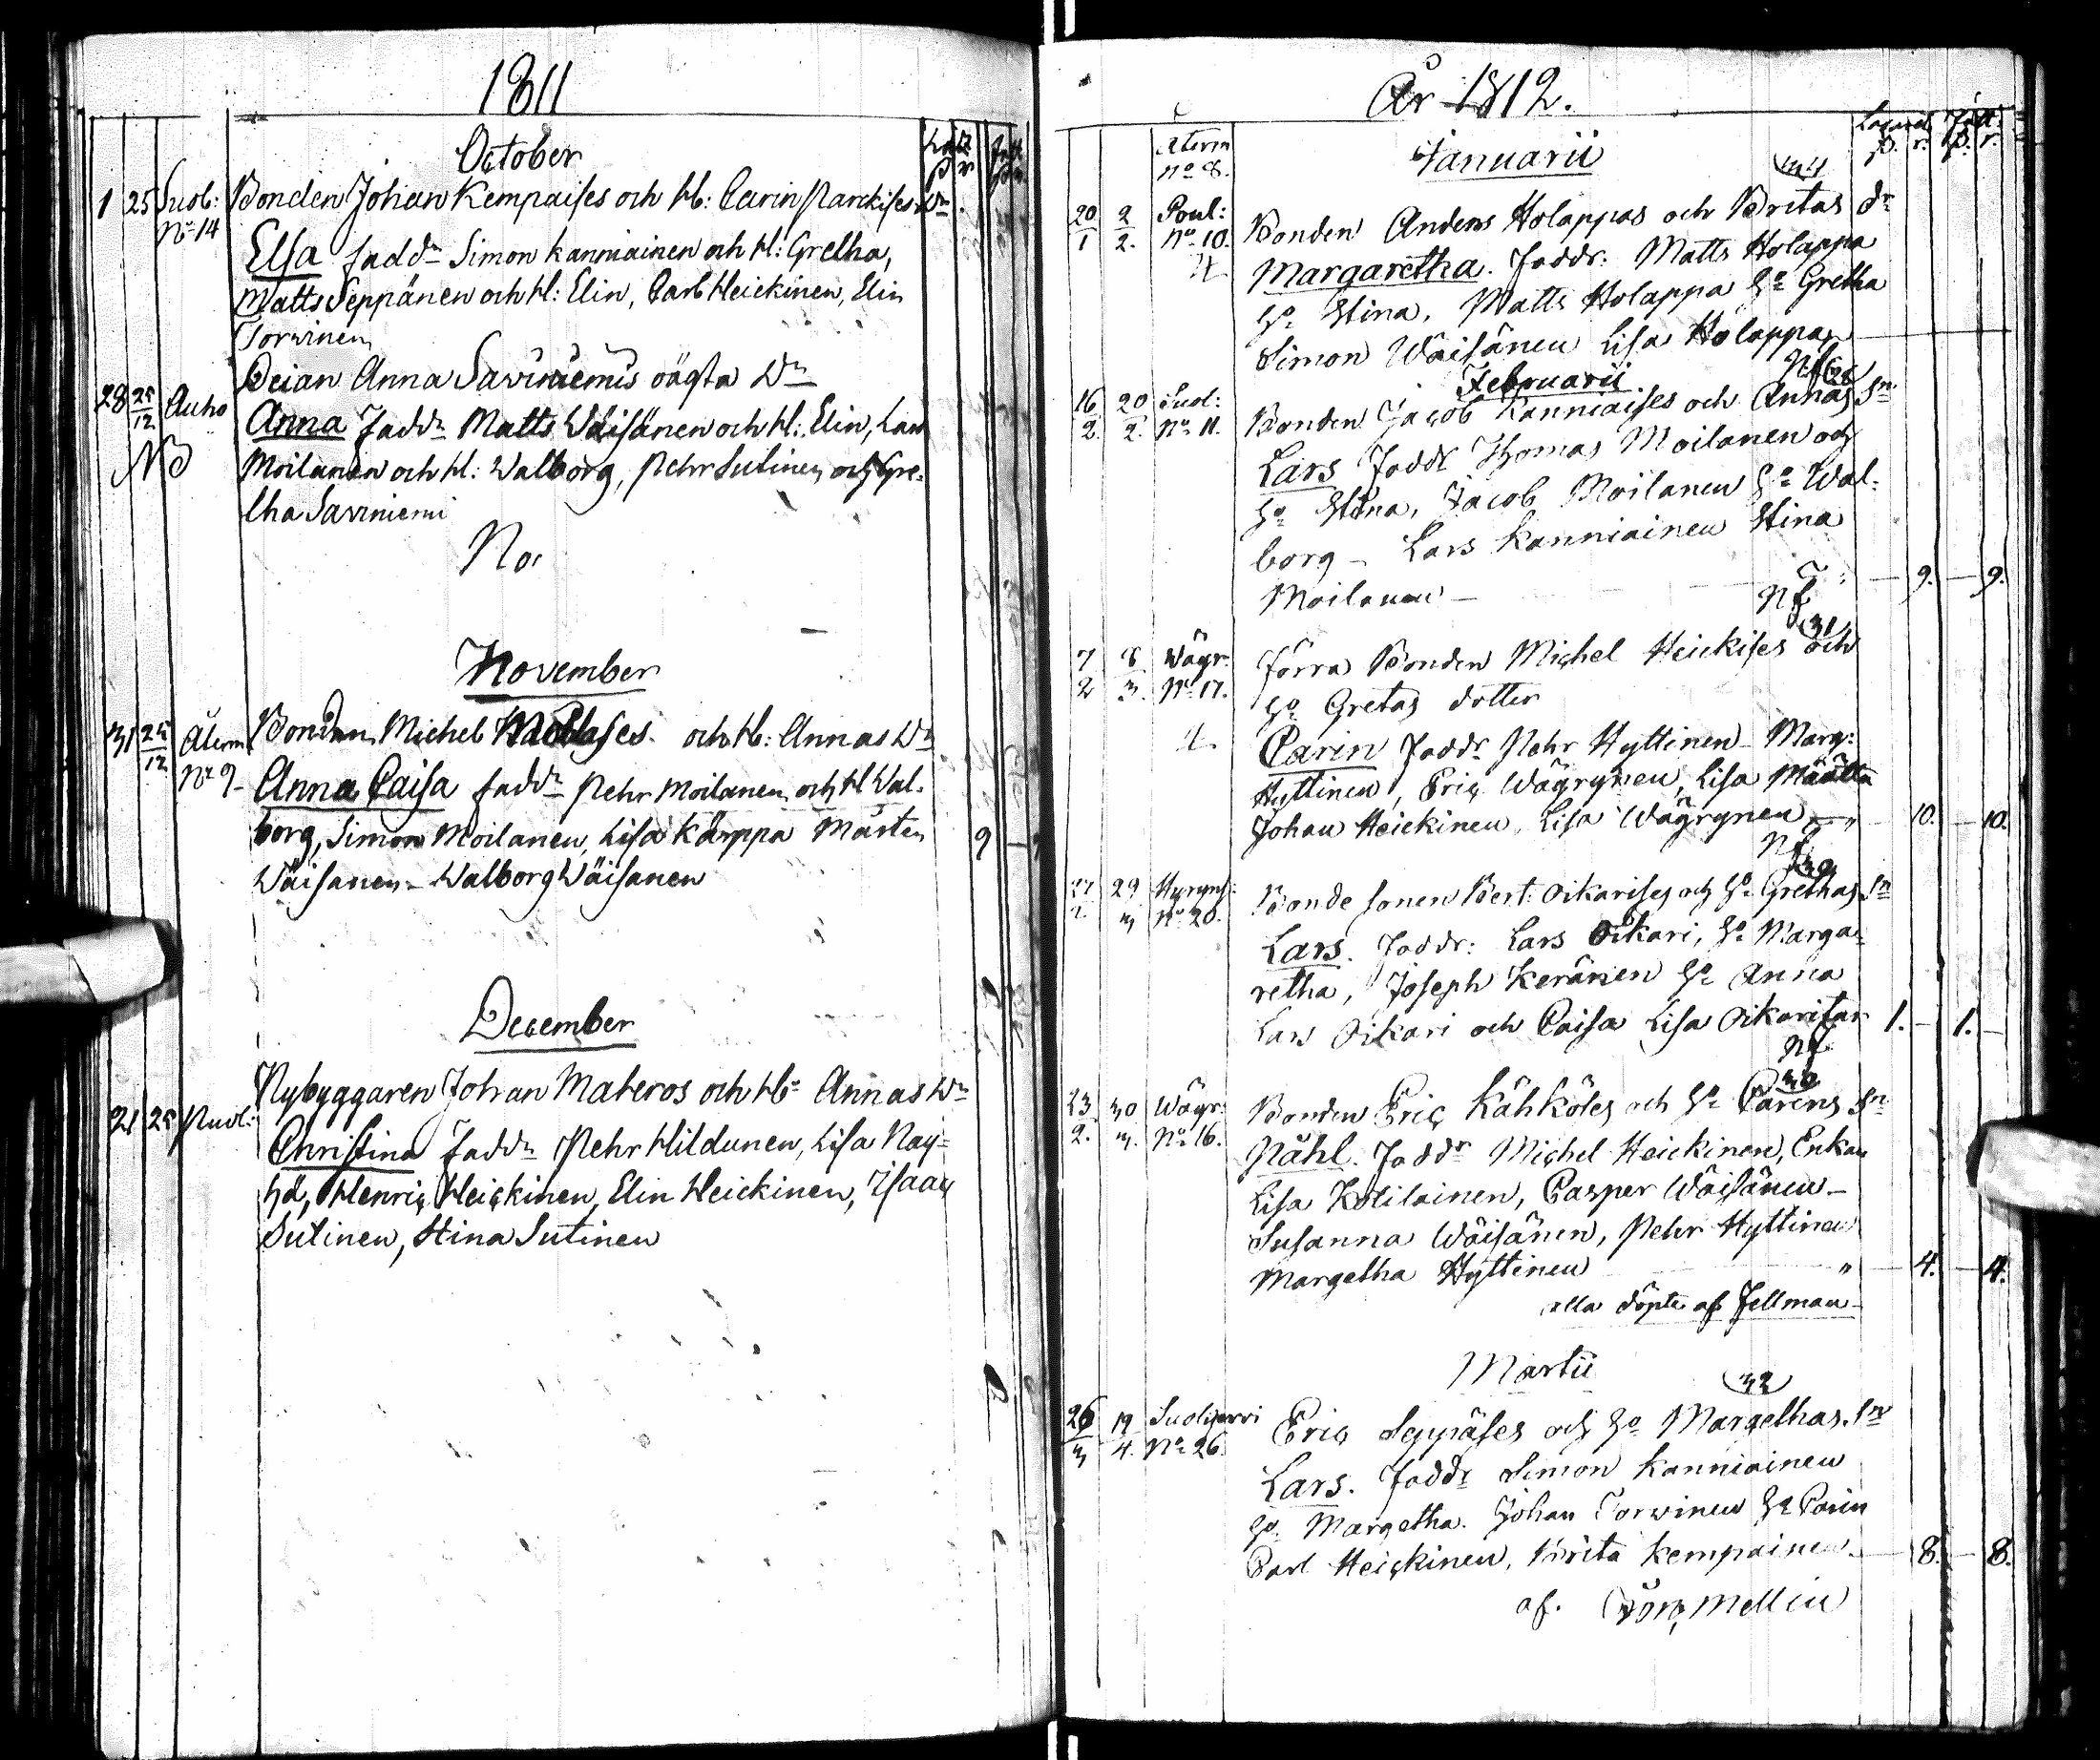 1811
October
1 25 Suol: Bonden Johan Kempaises och H: Carin Parckises Dr
No 14
Elsa faddr Simon Kanniainen och H: Gretha,
Matts Seppänen och H: Elin, Carl Heickinen, Elin
Torvinen
Peian Anna Saviniemis oägta Dr
28 25/12 Auho Anna Faddr Matts Wäisänen och H: Elin, Lars
NB Moilanen och H: Walborg, Pehr Sutinen och Gre-
tha Saviniemi
No.
November
31 25/12 Äterm No 9 Bonden Michel och H: Annas Dr
Anna Caisa faddr Pehr Moilanen och H Wal-
borg, Simon Moilanen, Lisa Kärppa Mårten 9
Wäisänen - Walborg Wäisänen
December
Nybyggaren Johan Materos och H: Annas Dr
21 25 Puol:
Christina Faddr Pehr Hildunen, Lisa Näy-
hä, Henric Heickinen, Elin Heickinen, Isaac
Sutinen, Stina Sutinen
År 1812.
Äterm
no 8.
Januarii
34
20/1 2/2 Poul: No 10. Bonden Anders Holappas och Britas dr
Margaretha. Faddr: Matts Holappa
Ho Stina, Matts Holappa Ho Gretha
Simon Wäisänen Lisa Holappa
Februarii
16/2 20/2 Suol: No 11. Bonden Jacob Kanniaises och Annas Sn
Lars Faddr Thomas Moilanen och
Ho Stina, Jacob Moilanen Ho Wal-
borg - Lars Kanniainen Stina
Moilanen - 9. 9.
31
7/2 8/3 Wägr. No 17. Förra Bonden Michel Heickises och
Ho Gretas dotter
Carin Faddr Pehr Hyttinen Marg:
Hyttinen, Eric Wägrynen, Lisa Määttä
Johan Heickinen, Lisa Wägrynen 10. 10.
27/2 29/3 No 20. Bonde sonen Bert: Oikarises och Ho Grethas Sn
Lars. Faddr: Lars Oikari, Ho Marga-
retha, Joseph Keränen Ho Anna
Lars Oikari och Caisa Lisa Oikaritar 1. 1.
30
23/2 30/3 Wägr: No 16. Bonden Eric Kähköles och Ho Carins Sn
Påhl. Faddr Michel Heickinen, Enkan
Lisa Kotilainen, Casper Wäisänen -
Susanna Wäisänen, Pehr Hyttinen
Margetha Hyttinen 4. 4.
alla döpte af Fellman
Martii
32
26/3 19/4. Suolijervi No 26. Eric Seppäses och Ho Margethas Sn
Lars. Faddr Simon Kanniainen
Ho Margetha. Johan Torvinen Ho Carin
Carl Heickinen, Brita Kempainen 8. 8.
af. Mellin